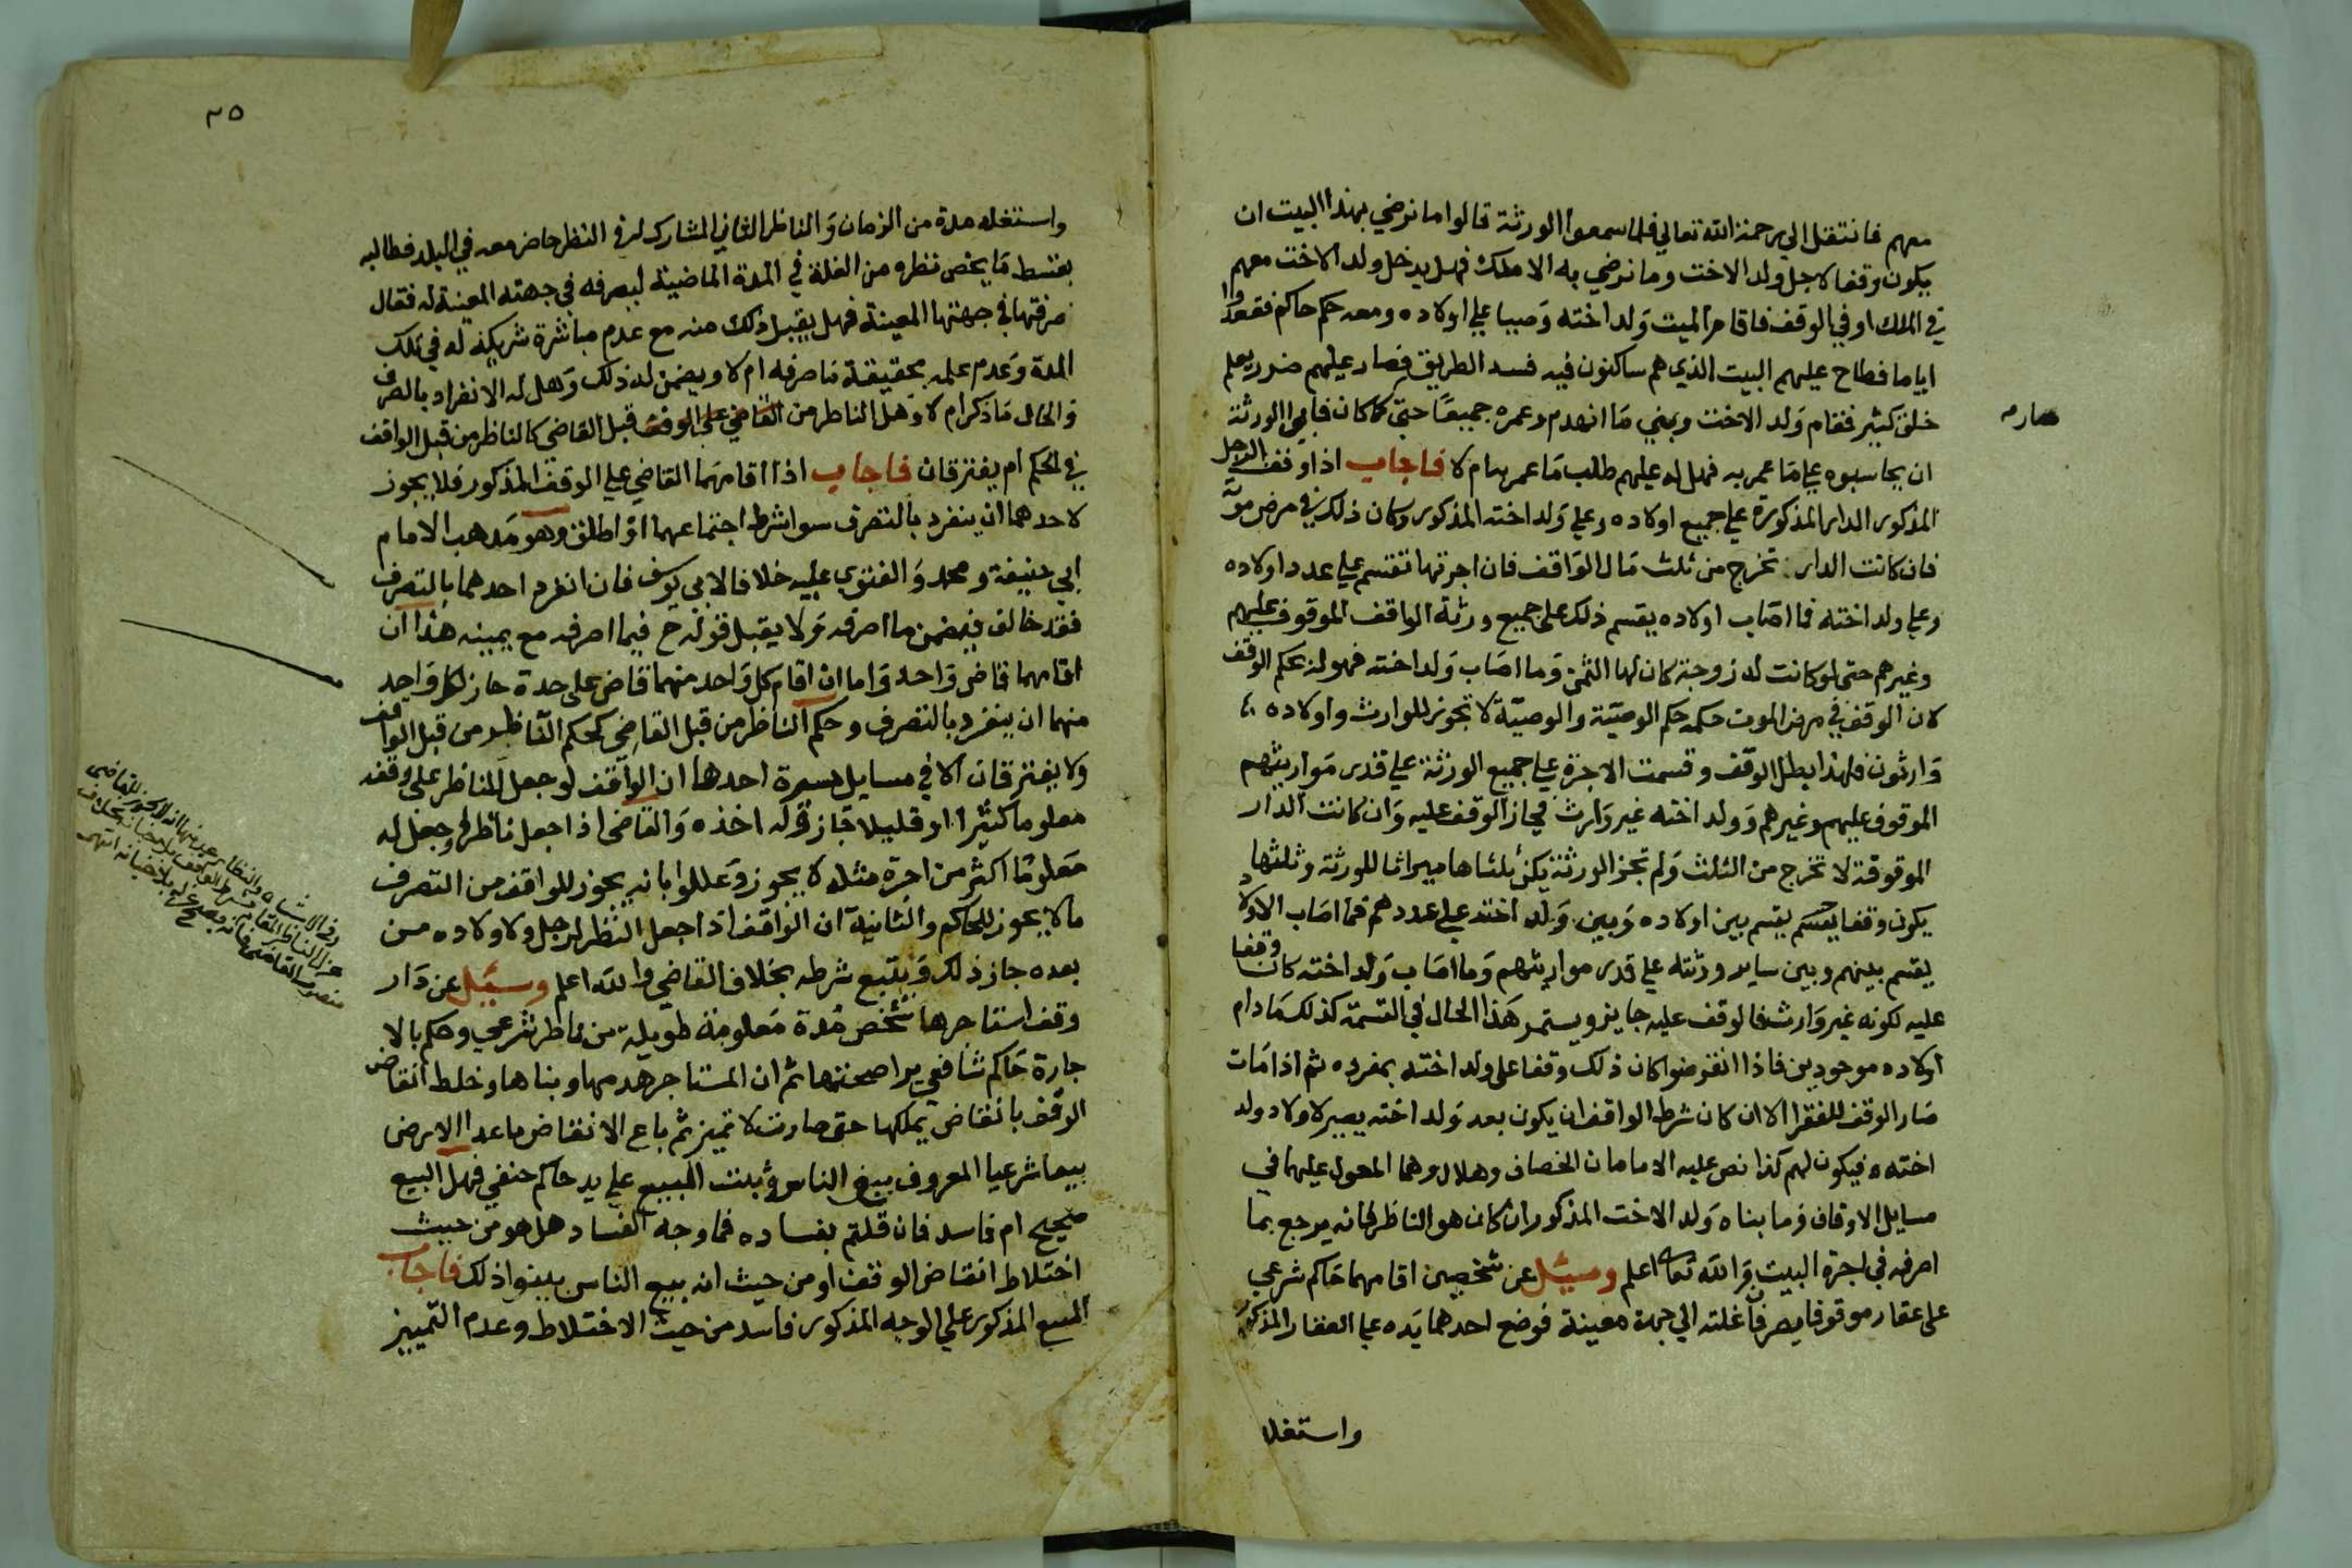 معهم فانتقل الي رحمة الله تعالي فلما سمعوا الورثة قالوا ما نرضي بهذا البيت ان
يكون وقفا لاجل ولد الاخت وما نرضي به الا ملك فهل يدخل ولد الاخت معهم
في الملك او في الوقف فاقامر الميت ولد اخته وصيا علي اولاده ومعه حكم حاكم فقعدوا
اياما فطاح عليهم البيت الذي هم ساكنون فيه فسد الطريق فصار عليهم ضرر يعلم
صار
خلق كثير فقام ولد الاخت وبني ما انهدم وعمره جميعا حتي كما كان فابي الورثة
ان يحاسبوه علي ما عمر به فهل له عليهم طلب ما عمر به ام لا فاجاب اذا وقف الرجل
المذكور الدار المذكورة علي جميع اولاده وعلي ولد اخته المذكور وكان ذلك في مرض موته
فان كانت الدار تخرج من ثلث مال الواقف فان اجرتها تقسم علي عدد اولاده
وعلي ولد اخته فما اصاب اولاده يقسم ذلك على جميع ورثة الواقف الموقوف عليهم
وغيرهم حتى لو كانت له زوجة كان لها الثمن وما اصاب ولد اخته فهو له بحكم الوقف
لان الوقف في مرض الموت حكمه حكم الوصية والوصية لا تجوز للوارث واولاده
وارثون فلهذا بطل الوقف وقسمت الاجرة علي جميع الورثة علي قدر مواريثهم
الموقوف عليهم وغيرهم وولد اخته غير وارث فجاز الوقف عليه وان كانت الدار
الموقوفة لا تخرج من الثلث ولم تجز الورثة يكن ثلثاها ميراثا للورثة وثلثها
يكون وقفا يقسم بين اولاده وبين ولد اخته علي عددهم فما اصاب الاولاد
يقسم بينهم وبين ساير ورثته علي قدر مواريثهم وما اصاب ولد اخته كان وقفا
عليه لكونه غير وارث فالوقف عليه جايز ويستمر هذا الحال في القسمة كذلك ما دام
اولاده موجودين فاذا انقرضوا كان ذلك وقفا على ولد اخته بمفرده ثم اذا مات
صار الوقف للفقرا الا ان كان شرط الواقف ان يكون بعد ولد اخته يصير لاولاد ولد
اخته فيكون لهم كذا نص عليه الامامان الخصاف وهلال وهما المعول عليهما في
مسايل الاوقاف وما بناه ولد الاخت المذكور ان كان هو الناظر فانه يرجع بما
اصرفه في اجرة البيت والله تعالى اعلم وسئل عن شخصين اقامهما حاكم شرعي
على عقار موقوف يصرفا غلته الي جهة معينة فوضع احدهما يده علي العقار المذكور
واستغله
٢٥
واستغله مدة من الزمان والناظر الثاني المشارك له في النظر حاضر معه في البلد فطالبه
بقسط ما يخص نظره من الغلة في المدة الماضية ليصرفه في جهته المعينة له فقال
صرفتها في جهتها المعينة فهل يقبل ذلك منه مع عدم مباشرة شريكه له في تلك
المدة وعدم علمه بحقيقة ما صرفه ام لا ويضمن له ذلك وهل له الانفراد بالصرف
والحال ما ذكر ام لا وهل الناظر من القاضي على الوقف قبل القاضي كالناظر من قبل الواقف
في الحكم ام يفترقان فاجاب اذا اقامهما القاضي علي الوقف المذكور فلا يجوز
لاحدهما ان ينفرد بالتصرف سوا شرط اجتماعهما او اطلق وهو مذهب الامام
ابي حنيفة ومحمد والفتوي عليه خلافا لابي يوسف فان انفرد احدهما بالتصرف
فقد خالف فيضمن ما اصرفه ولا يقبل قوله ح فيما اصرفه مع يمينه هذا ان
اقامهما قاض واحد واما ان اقام كل واحد منهما قاض على حدة جاز لكل واحد
منهما ان ينفرد بالتصرف وحكم الناظر من قبل القاضي كحكم الناظر من قبل الواقف
ولا يفترقان الا في مسايل يسيرة احدها ان الواقف لو جعل للناظر على وقفه
معلوما كثيرا او قليلا جاز وله اخذه والقاضي اذا جعل ناظرا وجعل له
معلوما اكثر من اجرة مثله لا يجوز وعللوا بانه يجوز للواقف من التصرف
ما لا يجوز للحاكم والثانية ان الواقف اذا جعل النظر لرجل ولاولاده من
بعده جاز ذلك ويتبع شرطه بخلاف القاضي والله اعلم وسئل عن دار
وقف استاجرها شخص مدة معلومة طويلة من ناظر شرعي وحكم بالا
جارة حاكم شافعي يرا صحتها ثم ان المستاجر هدمها وبناها وخلط انقاض
الوقف بانقاض يملكها حتى صارت لا تميز ثم باع الانقاض ما عدا الارض
بيعا شرعيا المعروف ببيع الناس وثبت المبيع علي يد حاكم حنفي فهل البيع
صحيح ام فاسد فان قلتم بفساده فما وجه الفساد هل هو من حيث
اختلاط انقاض الوقف او من حيث انه بيع الناس بينوا ذلك فاجاب
المبيع المذكور علي الوجه المذكور فاسد من حيث الاختلاط وعدم التمييز
وفي الاشباه والنظاير انه لا يجوز للقاضي
عزل الناظر بلا خيانة بخلاف
منصوب القاضي فانه يصح عزله بلا خيانة انتهى